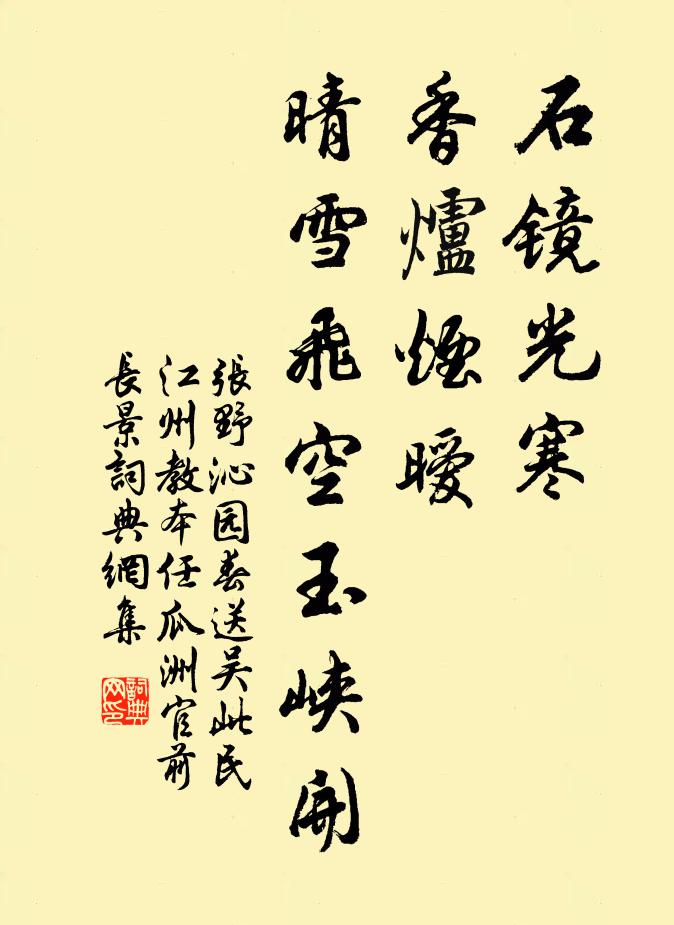 石镜光寒
香爐煙曖
晴雪飛空玉峡開
張野沁园春送吴此民
江州教本任瓜洲官前
長景詞典網集
詞典网印